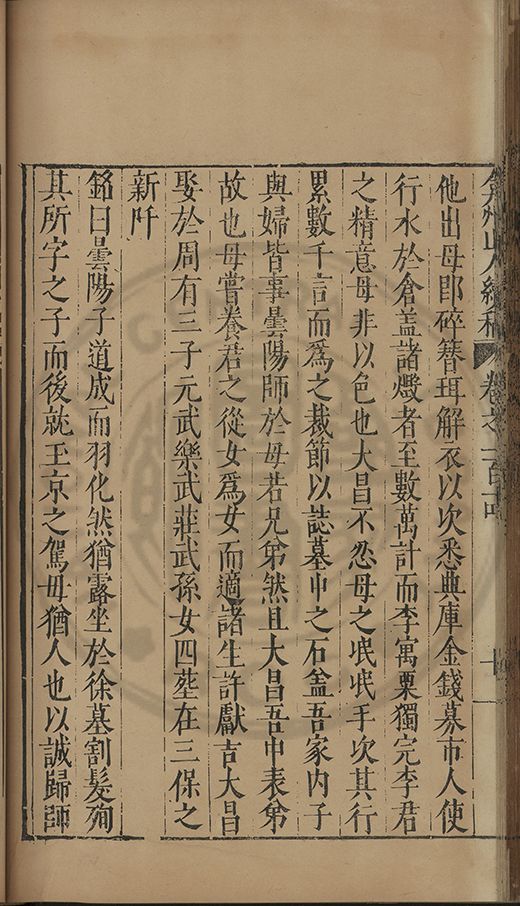 弇州山人續稿 卷之一百十四
他出母卽碎簪珥解衣以次悉典庫金錢募市人使
行水於倉盖諸燬者至數萬計而李寓粟獨完李君
之精意母非以色也大昌不忍母之泯泯手次其行
累數千言而爲之裁節以誌墓中之石盖吾家内子
與婦皆事曇陽師於母若兄弟然且大昌吾中表弟
故也母嘗養君之從女爲女而適諸生許獻吉大昌
娶於周有三子元武樂武莊武孫女四塟在三保之
新阡
銘曰曇陽子道成而羽化然猶露坐於徐墓割髮殉
其所字之子而後就玉京之駕母猶人也以誠歸師